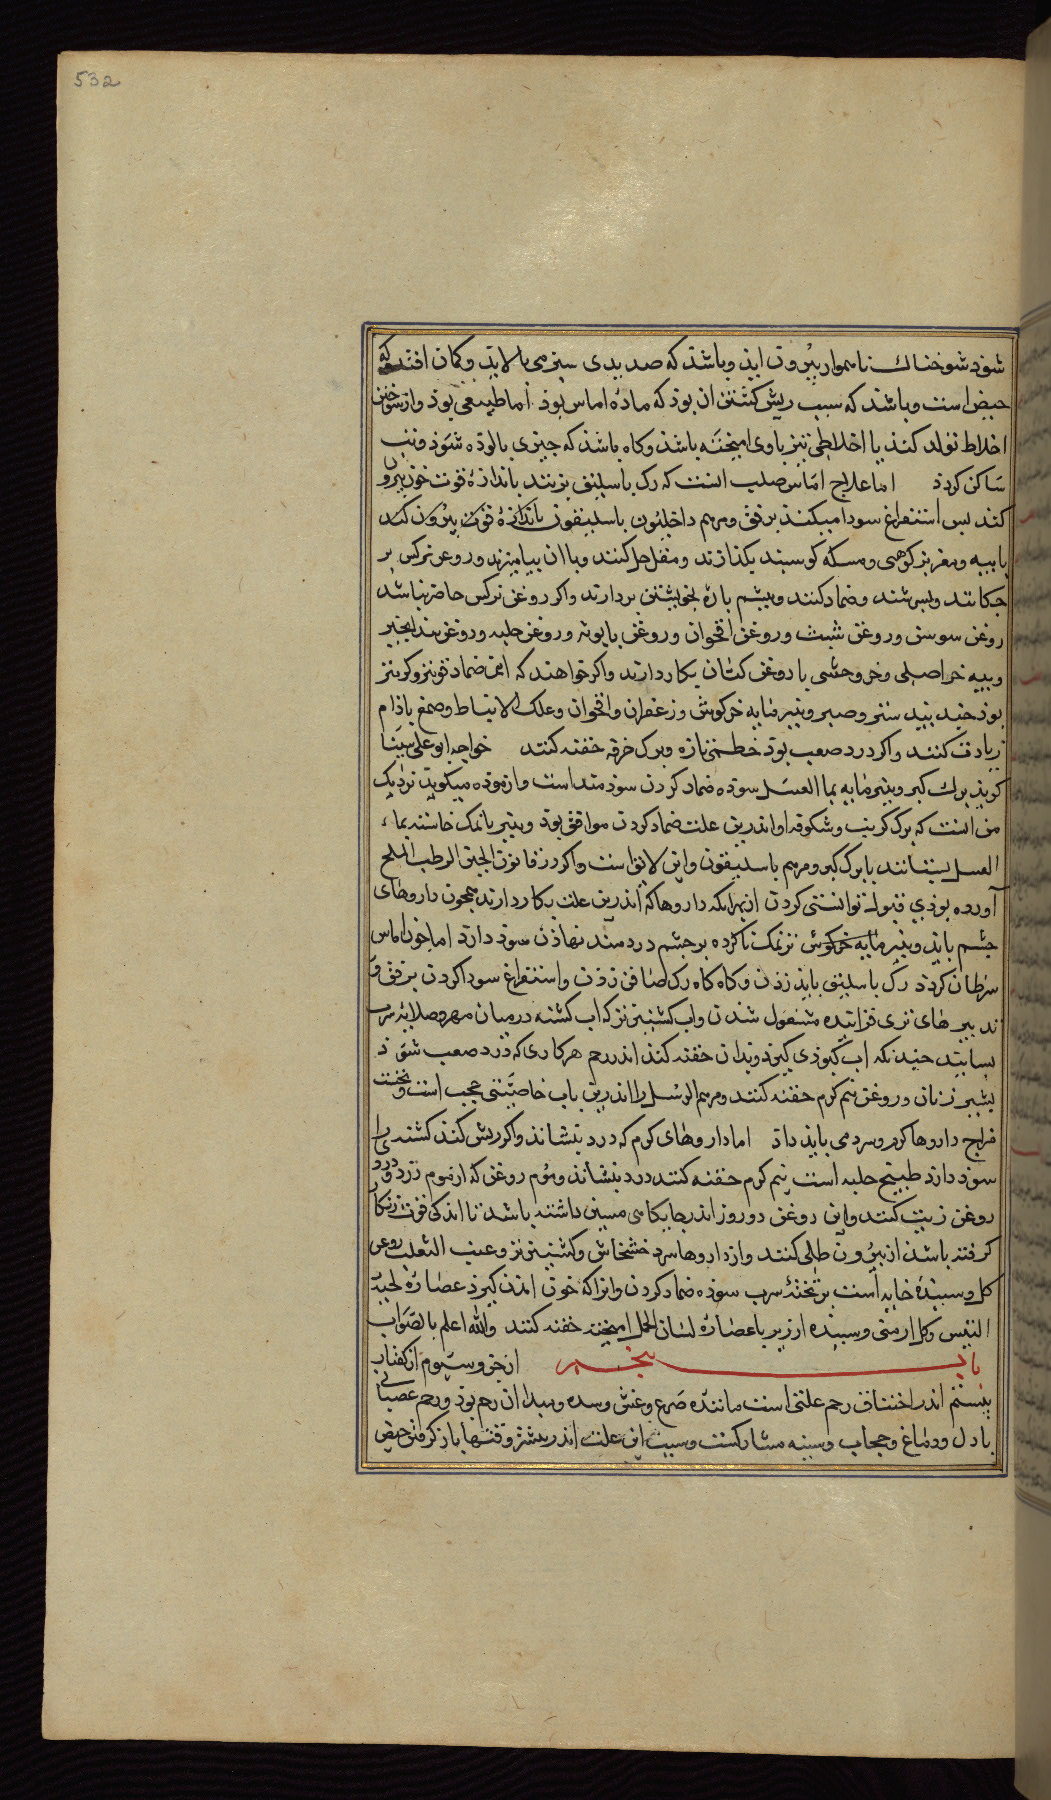 532
شوذ شوخناك ناهموار بیرون آید و باشذ که صدیدی سبز می بالاید و کمان افتد که
حیض است و باشذ که سبب ریش کشتن آن بوذ که مادۀ اماس بوذ اما طبیعی بوذ و از سوختن
اخلاط تولد کند یا اخلاطی تیز با وی آمیخته باشذ و کاه باشذ که چیزی بالوده شوذ و تب
ساکن کردذ اما علاج اماس صلب آنست که رك باسلیق بزنند باندازۀ قوت خون بیرون
کنند بس استفراغ سودا میکنند برفق و مرهم داخلیون باسلیقون باندازۀ قوت بیرون کنند
با بیه و مغز بز کوهی و مسکه کوسبند بکذازند و مقل حل کنند و با آن بیامیزند و روغن نرکس بر
جکانند و بسرشند و ضماد کنند و بپشم باره بخویشتن بردارند و اکر روغن نرکس حاضر نباشد
روغن سوسن و روغن شبث و روغن اقحوان و روغن بابونه و روغن حلبه و روغن بیدانجیر
و بیه خر اصلی و خر وحشی با روغن کتان بکار دارند و اکر خواهند که این ضماد قوی تر و کرم تر
بوذ جند بیدستر و صبر و بنیر مایه خرکوش و زعفران و اقحوان و علك الانباط و صمغ باذام
زیادت کنند و اکر درد صعب بوذ خطمی تازه و برك خرفه حقنه کنند خواجه ابو علی سینا
کویذ برك کبر و بنیر مایه بما العسل سوده ضماد کردن سودمند است و ازموده میکویذ نزدیك
من آنست که برك کرنب و شکوفه او اندرین علت ضماد کردن موافق بوذ و بنیر با نمك خاسته بماء
العسل بستانند با برك کبر و مرهم باسلیقون و این لایق است و اکر در قانون الجبن الرطب المملح
آورده بوذی قبوله توانستی کردن از بهر انکه داروها که اندرین علت بکار دارند همجون داروهای
جشم بایذ و بنیر مایه خرکوش نمك ناکرده بر جشم دردمند نهاذن سوذ دارذ اما جون اماس
سرطان کردذ رك باسلیق بایذ زذن و کاه کاه رك صافن زذن و استفراغ سودا کردن برفق و
تدبیرهای تری فزاینده مشغول شدن و اب کشنیز تر که اب کشته درمیان مهر و صلایه سرب
بسایند جندانکه اب کبوذی کیرذ و بدان حقنه کنند اندر رحم هر کاری که درد صعب شوذ
بشیر زنان و روغن نیم کرم حقنه کنند و مرهم الرسل را اندرین باب خاصیتی عجب است و نخست
مزاج داروها کرم و سرد می بایذ داذ اما داروهای کرم که درد بنشاند و اکر ریش کند کشته را
سوذ دارذ طبیخ حلبه است نیم کرم حقنه کنند درد بنشاند و موم روغن که از موم زرد و
روغن زیت کنند و این روغن دو روز اندر جایکاهی مسین داشته باشذ تا اندکی قوت زنکار
کرفته باشذ از بیرون طلی کنند و از داروها سرد خشخاش و کشنیز تر و عنب الثعلب روغن
کل و سبیذۀ خایه است بر تختۀ سرب سوذه ضماد کردن و انرا که خون امدن کیرذ عصارۀ لحیة
التیس و کل ارمنی و سبیذه ارزیر با عصارۀ لسان الحمل امیخته حقنه کنند والله اعلم بالصواب
باب پنجم از جزو سیوم از کفتار
بیستم اندر اختناق رحم علتی است مانندۀ صرع و غشی و سده و مبدا ان رحم بوذ و رحم عصبانی
با دل و دماغ و حجاب و سینه مشارکست و سبب این علت اندر بیشتر وقتها باز کرفتن حیض